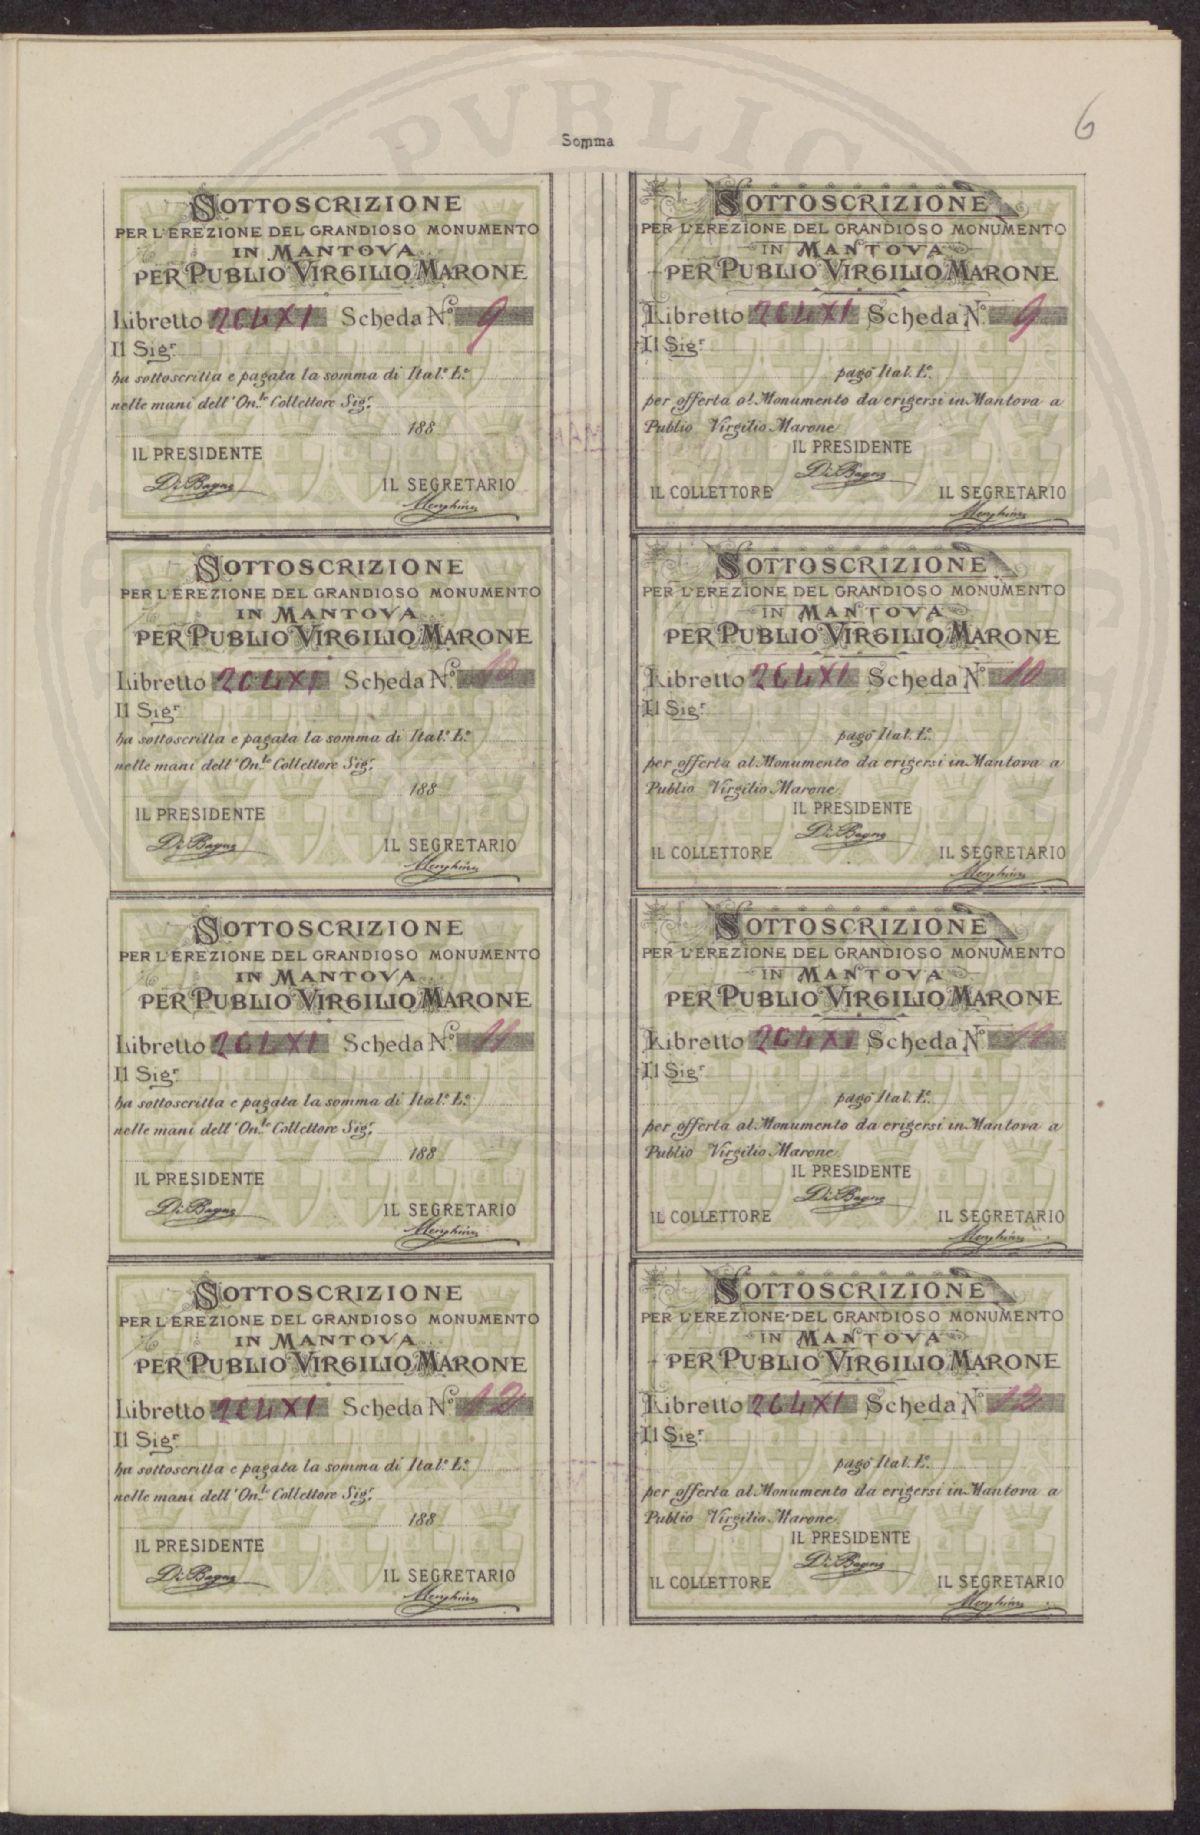 6
Somma
SOTTOSCRIZIONE
PER L'EREZIONE DEL GRANDIOSO MONUMENTO
IN MANTOVA
PER PUBLIO VIRGILIO MARONE
Libretto 264XI Scheda N.º 9
Il Sigr
ha sottoscritta e pagata la somma di Ital.e L.e
nelle mani dell'On.le Collettore Sigr.
188
IL PRESIDENTE
Di Bagno
IL SEGRETARIO
Menghini
SOTTOSCRIZIONE
PER L'EREZIONE DEL GRANDIOSO MONUMENTO
IN MANTOVA
PER PUBLIO VIRGILIO MARONE
Libretto 264XI Scheda N.º 9
Il Sigr
pagò Ital. L.e
per offerta al Monumento da erigersi in Mantova a
Publio Virgilio Marone
IL PRESIDENTE
Di Bagno
IL COLLETTORE IL SEGRETARIO
Menghini
SOTTOSCRIZIONE
PER L'EREZIONE DEL GRANDIOSO MONUMENTO
IN MANTOVA
PER PUBLIO VIRGILIO MARONE
Libretto 264XI Scheda N.º 10
Il Sigr
ha sottoscritta e pagata la somma di Ital.e L.e
nelle mani dell'On.le Collettore Sigr.
188
IL PRESIDENTE
Di Bagno
IL SEGRETARIO
Menghini
SOTTOSCRIZIONE
PER L'EREZIONE DEL GRANDIOSO MONUMENTO
IN MANTOVA
PER PUBLIO VIRGILIO MARONE
Libretto 264XI Scheda N.º 10
Il Sigr
pagò Ital. L.e
per offerta al Monumento da erigersi in Mantova a
Publio Virgilio Marone
IL PRESIDENTE
Di Bagno
IL COLLETTORE IL SEGRETARIO
Menghini
SOTTOSCRIZIONE
PER L'EREZIONE DEL GRANDIOSO MONUMENTO
IN MANTOVA
PER PUBLIO VIRGILIO MARONE
Libretto 264XI Scheda N.º 11
Il Sigr
ha sottoscritta e pagata la somma di Ital.e L.e
nelle mani dell'On.le Collettore Sigr.
188
IL PRESIDENTE
Di Bagno
IL SEGRETARIO
Menghini
SOTTOSCRIZIONE
PER L'EREZIONE DEL GRANDIOSO MONUMENTO
IN MANTOVA
PER PUBLIO VIRGILIO MARONE
Libretto 264XI Scheda N.º 11
Il Sigr
pagò Ital. L.e
per offerta al Monumento da erigersi in Mantova a
Publio Virgilio Marone
IL PRESIDENTE
Di Bagno
IL COLLETTORE IL SEGRETARIO
Menghini
SOTTOSCRIZIONE
PER L'EREZIONE DEL GRANDIOSO MONUMENTO
IN MANTOVA
PER PUBLIO VIRGILIO MARONE
Libretto 264XI Scheda N.º 12
Il Sigr
ha sottoscritta e pagata la somma di Ital.e L.e
nelle mani dell'On.le Collettore Sigr.
188
IL PRESIDENTE
Di Bagno
IL SEGRETARIO
Menghini
SOTTOSCRIZIONE
PER L'EREZIONE DEL GRANDIOSO MONUMENTO
IN MANTOVA
PER PUBLIO VIRGILIO MARONE
Libretto 264XI Scheda N.º 12
Il Sigr
pagò Ital. L.e
per offerta al Monumento da erigersi in Mantova a
Publio Virgilio Marone
IL PRESIDENTE
Di Bagno
IL COLLETTORE IL SEGRETARIO
Menghini